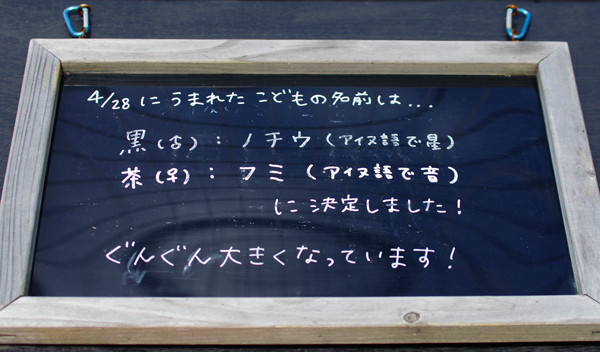 4/28 に うまれた こどもの名前は...
黒(♂): ノチウ (アイヌ語で星)
茶(♀): フミ (アイヌ語で音)
に決定しました!
ぐんぐん大きくなっています!